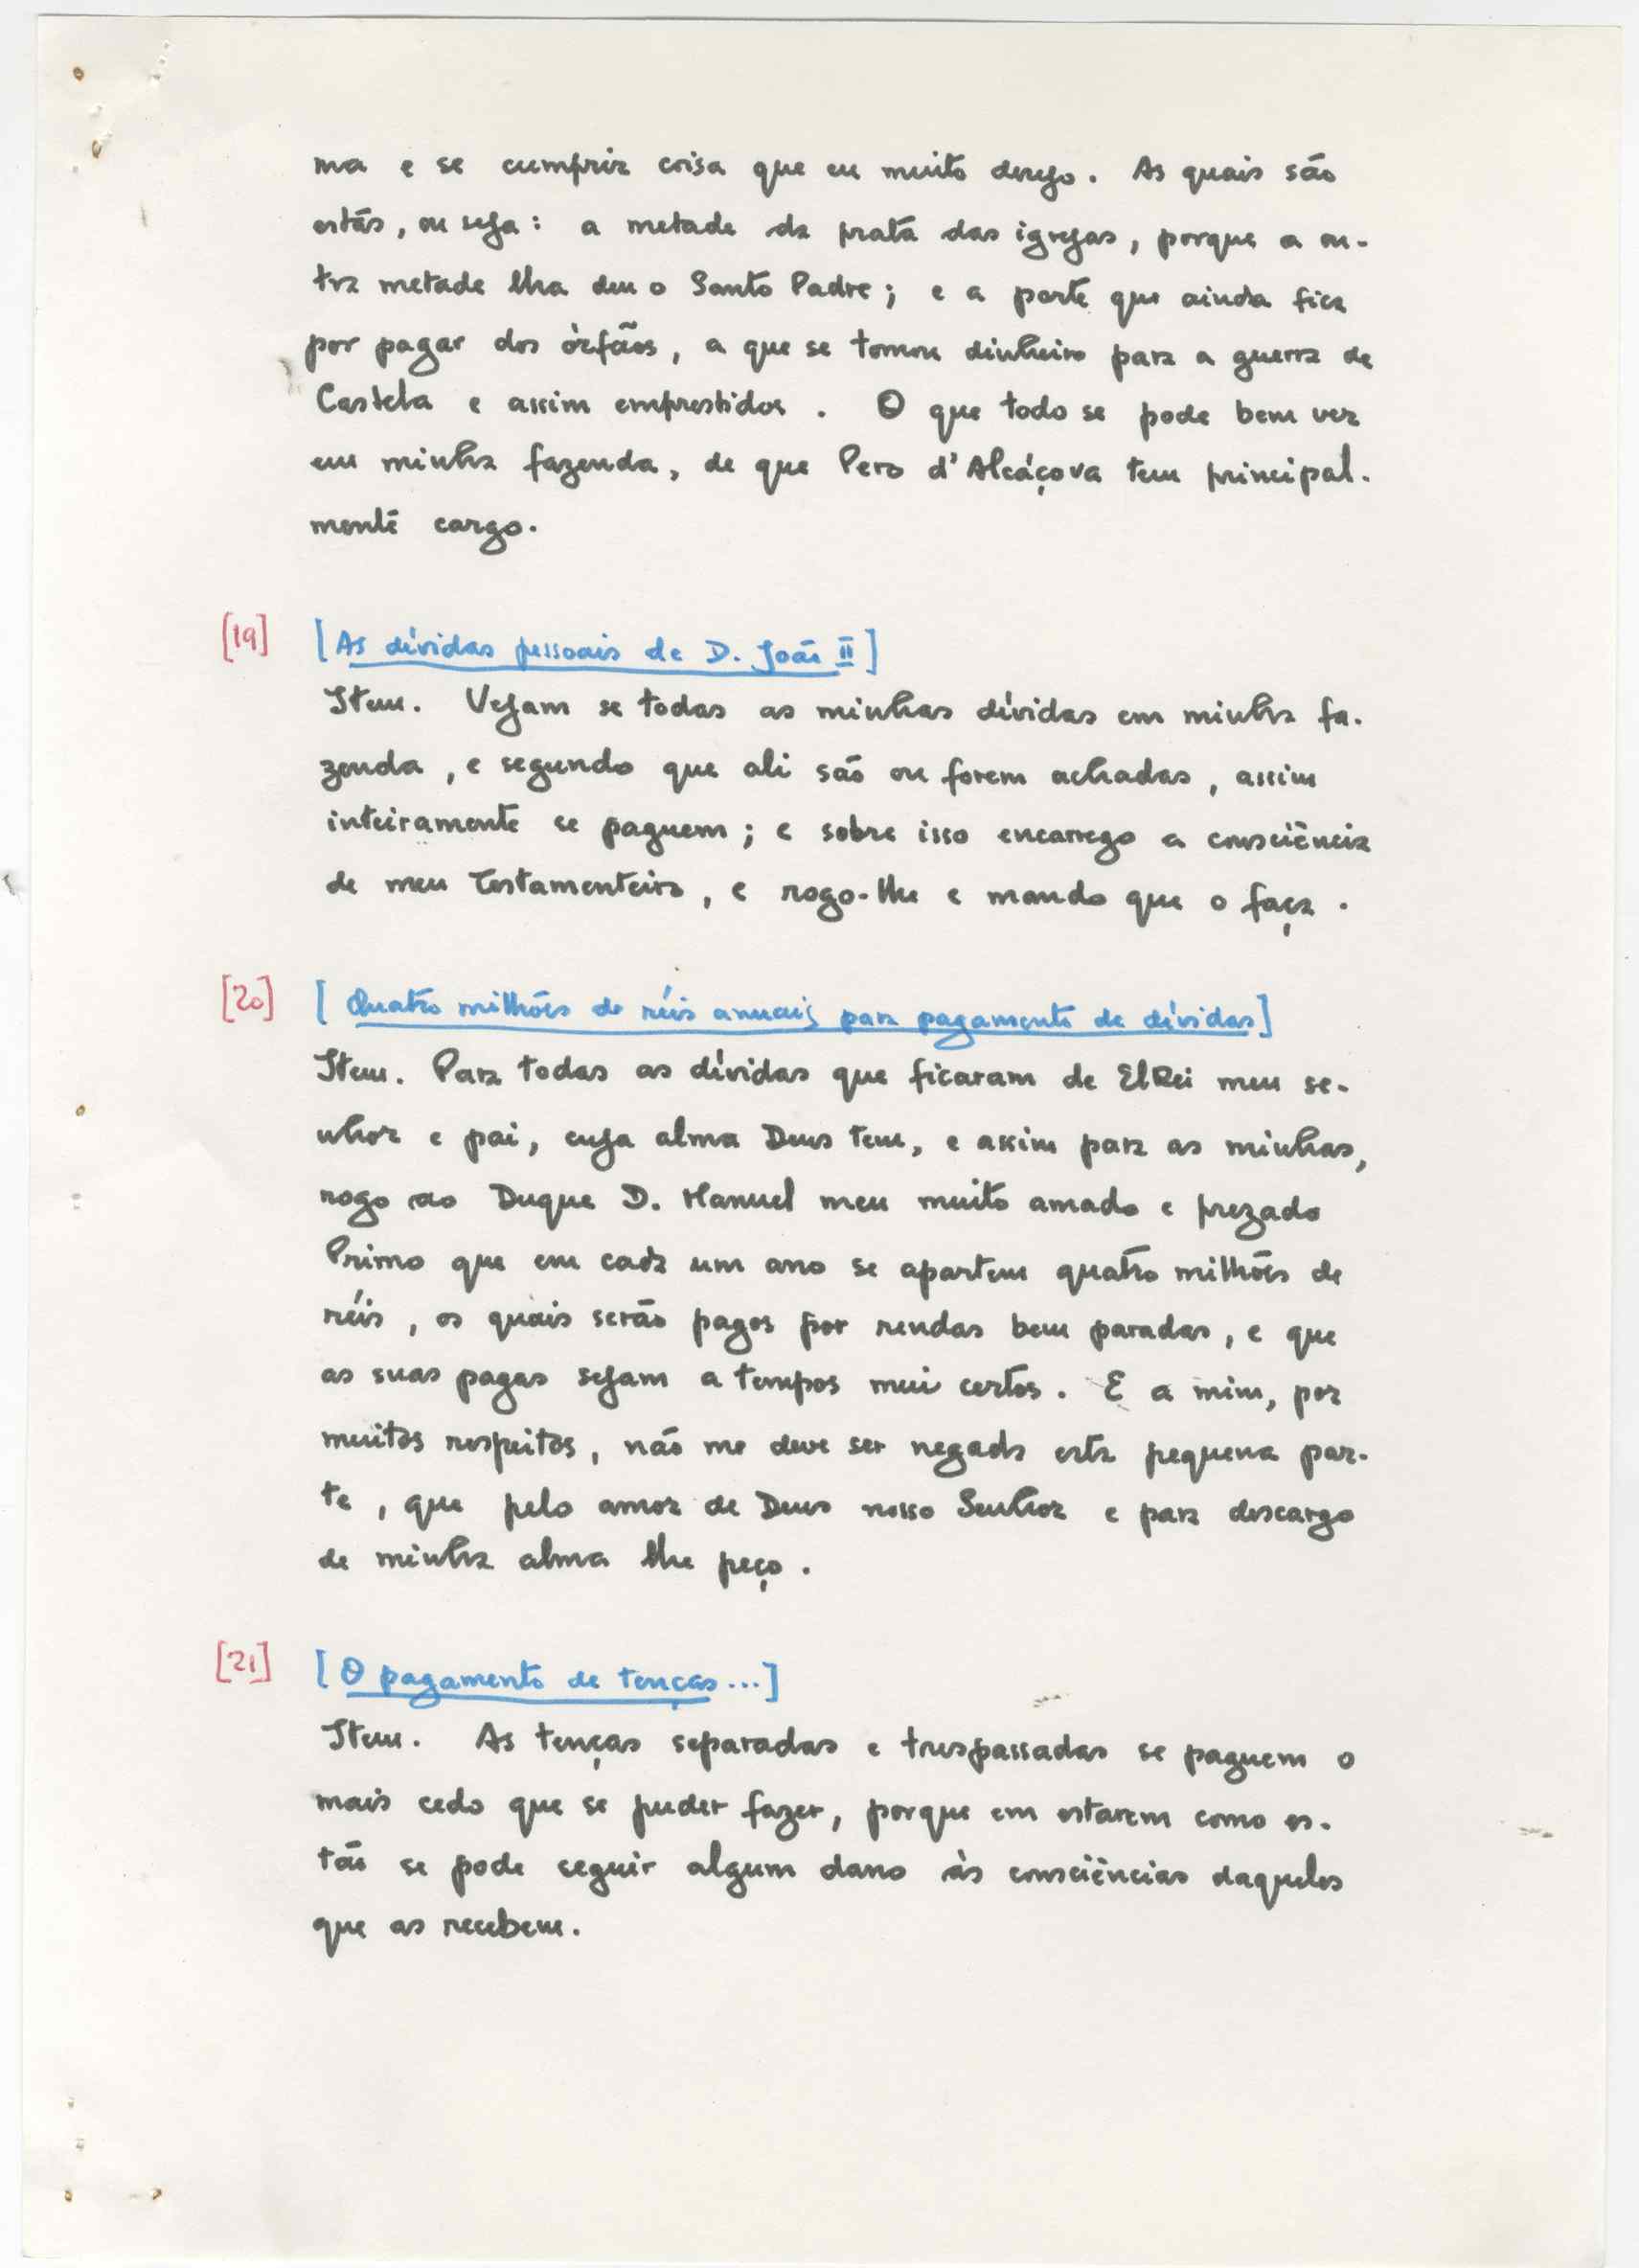 ma e se cumprir coisa que eu muito desejo. As quais são
estas, ou seja: a metade da prata das igrejas, porque a ou-
tra metade lha deu o Santo Padre; e a parte que ainda fica
por pagar dos órfãos, a que se tomou dinheiro para a guerra de
Castela e assim emprestidos. O que todo se pode bem ver
em minha fazenda, de que Pero d'Alcáçova tem principal-
mente cargo.
[19] [As dívidas pessoais de D. João II]
Item. Vejam se todas as minhas dívidas em minha fa-
zenda, e segundo que ali são ou forem achadas, assim
inteiramente se paguem; e sobre isso encarrego a consciência
de meu Testamenteiro, e rogo-lhe e mando que o faça.
[20] [Quatro milhões de réis anuais para pagamento de dívidas]
Item. Para todas as dívidas que ficaram de ElRei meu se-
nhor e pai, cuja alma Deus tem, e assim para as minhas,
rogo ao Duque D. Manuel meu muito amado e prezado
Primo que em cada um ano se apartem quatro milhões de
réis, os quais serão pagos por rendas bem paradas, e que
as suas pagas sejam a tempos mui certos. E a mim, por
muitos respeitos, não me deve ser negada esta pequena par-
te, que pelo amor de Deus nosso Senhor e para descargo
de minha alma lhe peço.
[21] [O pagamento de tenças...]
Item. As tenças separadas e trespassadas se paguem o
mais cedo que se puder fazer, porque em estarem como es-
tão se pode seguir algum dano às consciências daqueles
que as recebem.